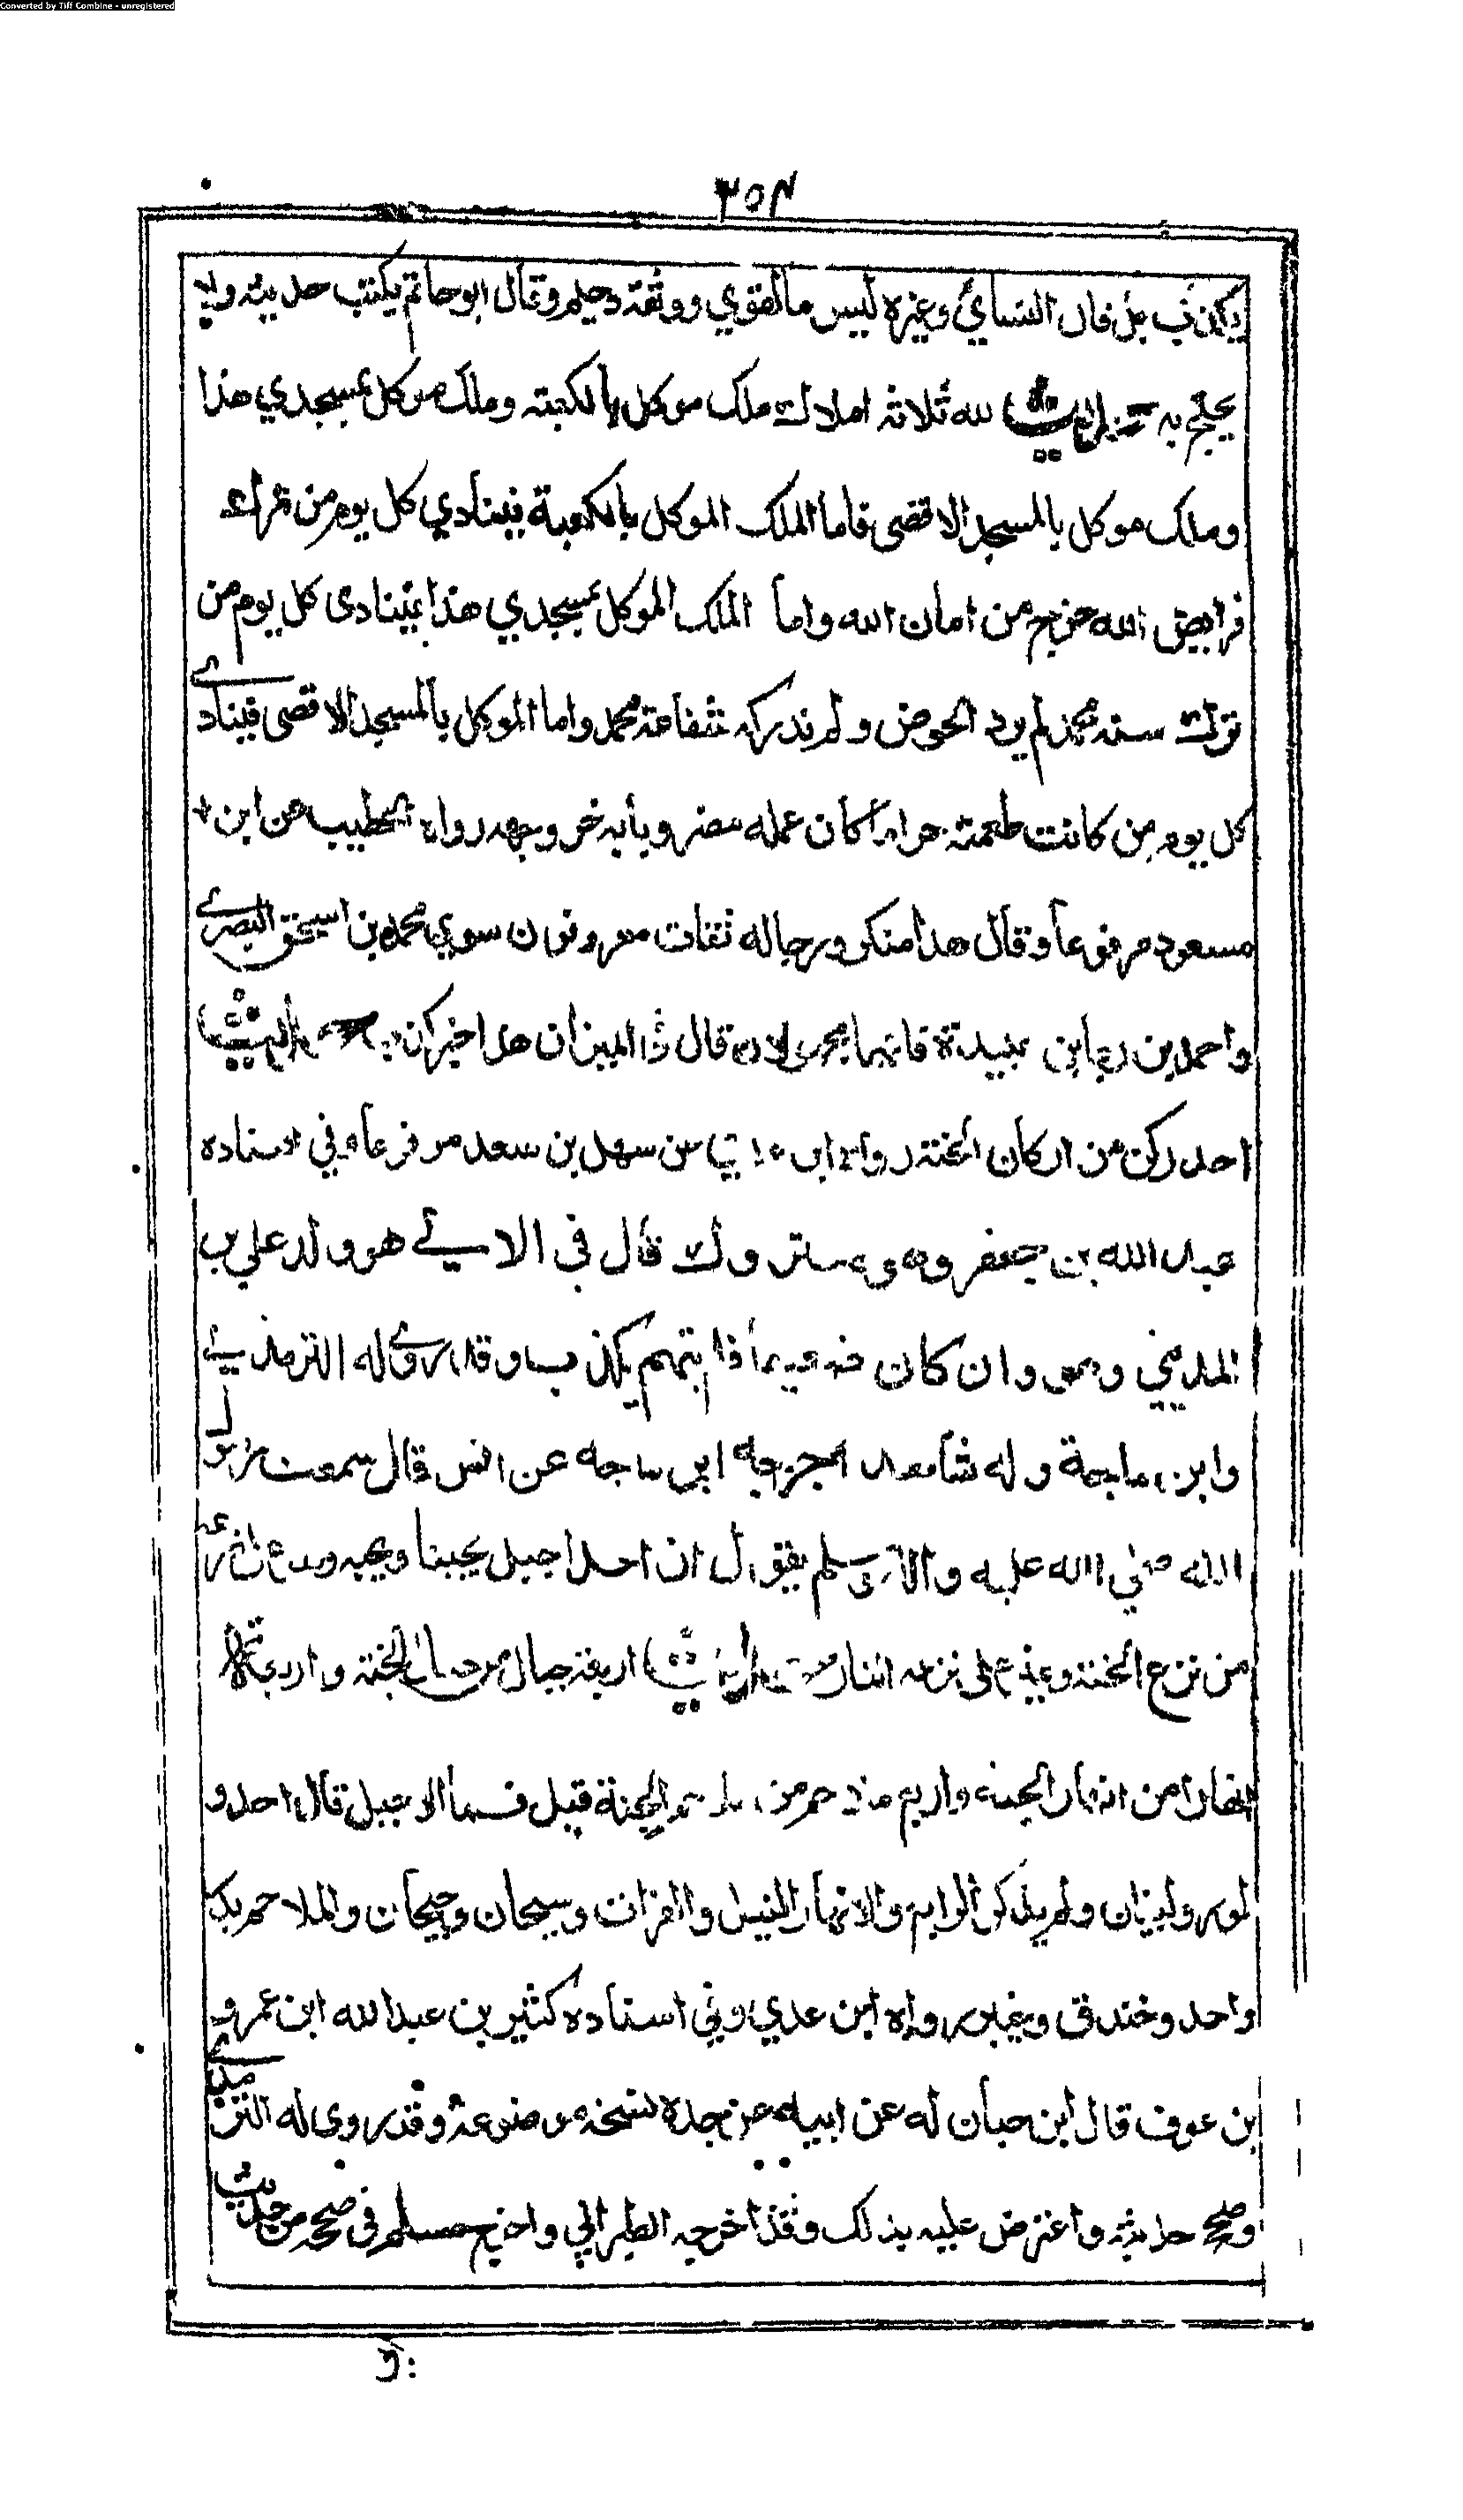 Converted by Tiff Combine - unregistered
٣٥٣
يكذب بل قال النسائي وغيره ليس بالقوي ووثقه دحيم وقال ابو حاتم يكتب حديثه ولا
يحتج به حديث لله ثلاثة املاك ملك موكل بالكعبة وملك موكل بمسجدي هذا
وملك موكل بالمسجد الاقصى فاما الملك الموكل بالكعبة فينادي كل يوم من ترك
فرايض الله خرج من امان الله واما الملك الموكل بمسجدي هذا فينادى كل يوم من
ترك سنة محمد لم يرد الحوض ولم تدركه شفاعة محمد واما الموكل بالمسجد الاقصى فينادي
كل يوم من كانت طعمته حراما كان عمله مضروبا به حر وجهه رواه الخطيب عن ابن
مسعود مرفوعا وقال هذا منكر ورجاله ثقات معروفون سوي محمد بن اسحق البصري
واحمد بن رجا بن عبيدة فانهما مجهولان قال في الميزان هذا خبر كذب حديث
احد ركن من اركان الجنة رواه عن سهل بن سعد مرفوعا وفي اسناده
عبد الله بن جعفر وهو متروك قال في اللآلي هو والد علي بن
المديني وهو وان كان ضعيفا فلم يتهم بكذب وقد روى له الترمذي
وابن ماجة وله شاهد اخرجه ابن ماجه عن انس قال سمعت رسول
الله صلى الله عليه وآله وسلم يقول ان احدا جبل يحبنا ونحبه وهو على ترعة
من ترع الجنة وعير على ترعة النار حديث اربعة جبال من جبال الجنة واربعة
انهار من انهار الجنة واربع ملاحم من ملاحم الجنة قيل فما الاجبل قال احد و
طور ولبنان ولم يذكر الرابع والانهار النيل والفرات وسيحان وجيحان والملاحم بدر
واحد وخندق وخيبر رواه ابن عدي وفي اسناده كثير بن عبد الله ابن عمرو
بن عوف قال ابن حبان له عن ابيه عن جده نسخه موضوعة وقد روى له الترمذي
وصحح حديثه واعترض عليه بذلك وقد اخرجه الطبراني واخرج مسلم في صحيحه من حديث